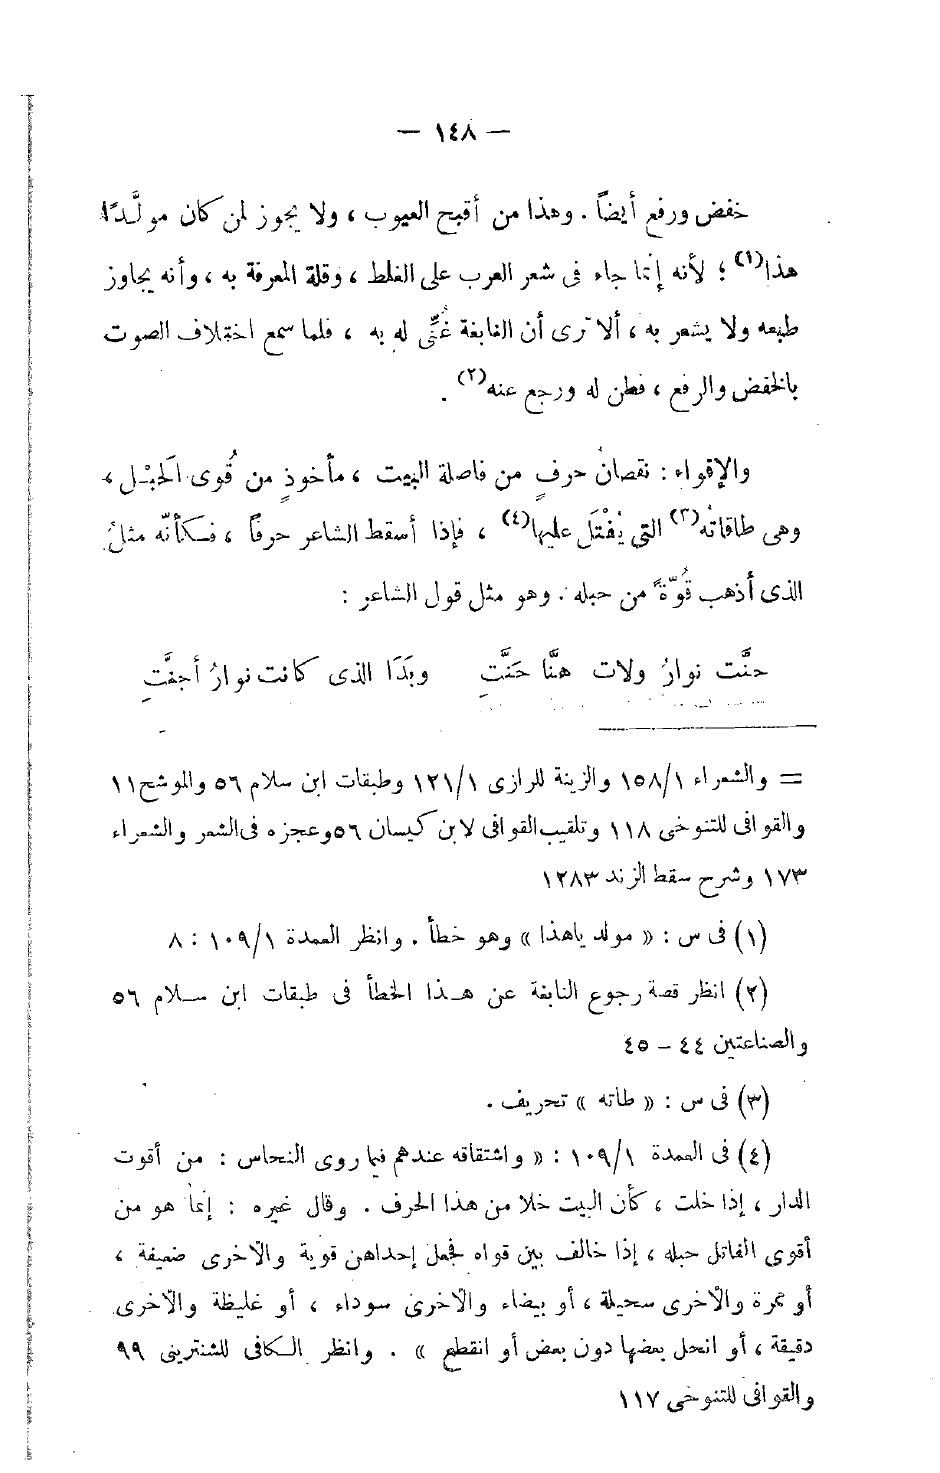 — ١٤٨ —
خفض ورفع أيضاً . وهذا من أقبح العيوب ، ولا يجوز لمن كان مولَّدًا
هذا(١) ؛ لأنه إنّما جاء فى شعر العرب على الغلط ، وقلة المعرفة به ، وأنه يجاوز
طبعه ولا يشعر به ، ألا ترى أن النابغة غُنِّى له به ، فلما سمع اختلاف الصوت
بالخفض والرفع ، فطن له ورجع عنه(٢) .
والإقواء : نقصانُ حرفٍ من فاصلة البيت ، مأخوذٍ من قُوى الَحبْل ،
وهى طاقاتُه(٣) التي يُفْتَل عليها(٤) ، فإذا أسقط الشاعر حرفاً ، فكأنّه مثلُ
الذى أذهب قُوّةً من حبله . وهو مثل قول الشاعر :
حنَّت نوارُ ولات هنَّا حَنَّتِ وبَدَا الذى كانت نوارُ أجنَّتِ
= والشعراء ١/‏١٥٨ والزينة للرازى ١/‏١٢١ وطبقات ابن سلام ٥٦ والموشح ١١
والقوافى للتنوخى ١١٨ وتلقيب القوافى لابن كيسان ٥٦ وعجزه فى الشعر والشعراء
١٧٣ وشرح سقط الزند ١٢٨٣
(١) فى س : « مولد ياهذا » وهو خطأ . وانظر العمدة ١/‏١٠٩ : ٨
(٢) انظر قصة رجوع النابغة عن هذا الخطأ فى طبقات ابن سلام ٥٦
والصناعتين ٤٤ – ٤٥
(٣) فى س : « طاته » تحريف .
(٤) فى العمدة ١/‏١٠٩ : « واشتقاقه عندهم فيما روى النحاس : من أقوت
الدار ، إذا خلت ، كأن البيت خلا من هذا الحرف . وقال غيره : إنما هو من
أقوى الفاتل حبله ، إذا خالف بين قواه فجعل إحداهن قوية والأخرى ضعيفة ،
أو ممرة والأخرى سحيلة ، أو بيضاء والأخرى سوداء ، أو غليظة والأخرى
دقيقة ، أو انحل بعضها دون بعض أو انقطع » . وانظر الكافى للشنترينى ٩٩
والقوافى للتنوخى ١١٧